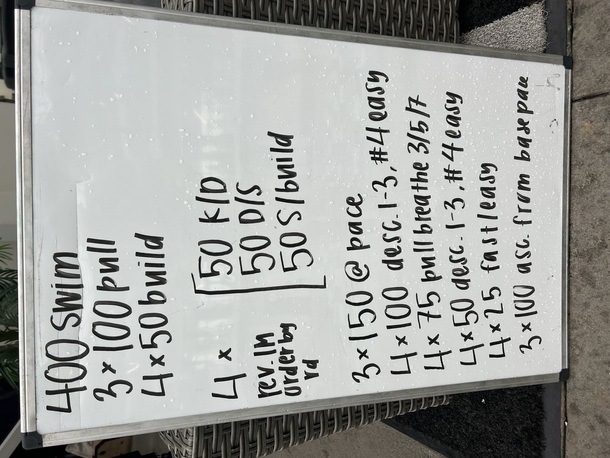 400 swim
3 x 100 pull
4 x 50 build
4 x
rev. IM
order by
rd
50 K/D
50 D/S
50 S/build
3 x 150 @ pace
4 x 100 desc. 1-3, #4 easy
4 x 75 pull breathe 3/5/7
4 x 50 desc. 1-3, #4 easy
4 x 25 fast/easy
3 x 100 asc. from base pace